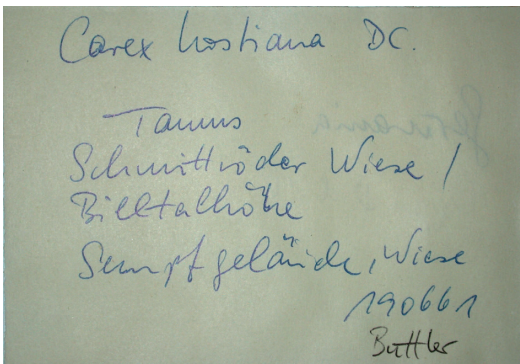 Carex hostiana DC.
Taunus
Schmittröder Wiese /
Billtalhöhe
Sumpfgelände, Wiese
190661
Buttler